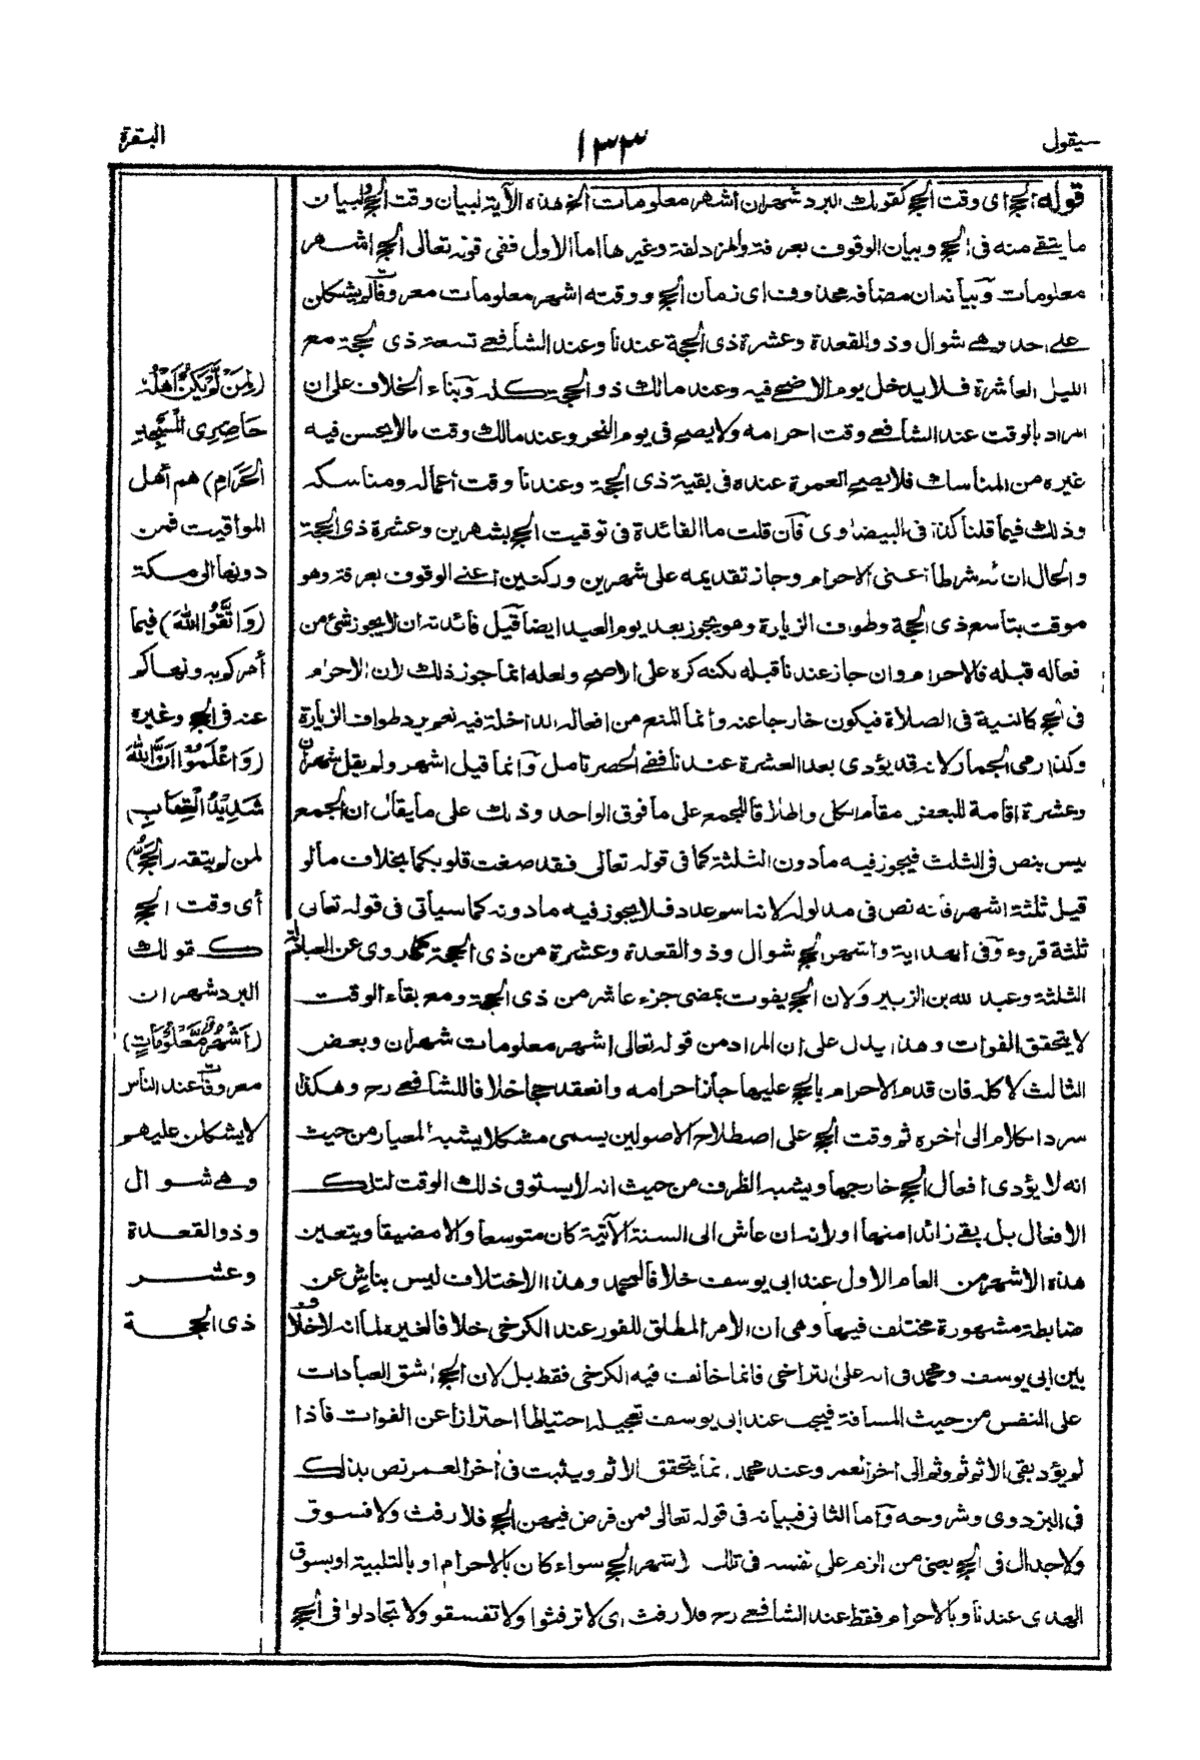 سيقول
١٣٣
البقرة
قوله الحج اى وقت الحج كقولك البرد شهران اشهر معلومات الخ هذه الآية لبيان وقت الحج ولبيان
ما يتقے منه فى الحج وبيان الوقوف بعرفة والمزدلفة وغيرها اما الاول ففى قوله تعالى الحج اشهر
معلومات وبيانه ان مضافه محذوف اى زمان الحج ووقته اشهر معلومات معروفات لم يشكلن
على احد وهے شوال وذو القعدة وعشرة ذى الحجة عندنا وعند الشافعے تسعة ذى الحجة مع
الليل العاشرة فلا يدخل يوم الاضحے فيه وعند مالك ذو الحجة كله وبناء الخلاف على ان
المراد بالوقت عند الشافعے وقت احرامه ولا يصح فى يوم النحر وعند مالك وقت ما لا يحسن فيه
غيره من المناسك فلا يصح العمرة عنده فى بقية ذى الحجة وعندنا وقت أعماله ومناسكه
وذلك فيما قلنا كذا فى البيضاوى فان قلت ما الفائدة فى توقيت الحج بشهرين وعشرة ذى الحجة
والحال ان شرطه اعنى الاحرام وجاز تقديمه على شهرين وركنين اعنے الوقوف بعرفة وهو
موقت بتاسع ذى الحجة وطواف الزيارة وهو يجوز بعد يوم العيد ايضا قيل فائدته ان لا يجوز شئ من
افعاله قبله فالاحرام وان جاز عندنا قبله لكنه كره على الاصح ولعله انما جوز ذلك لان الاحرام
فى الحج كالنية فى الصلاة فيكون خارجا عنه وانما المنع من افعاله الداخلة فيه نعم يرد طواف الزيارة
وكذا رمى الجمار لانه قد يؤدى بعد العشرة عندنا ففے الحصر تامل وانما قيل اشهر ولم يقل شهران
وعشرة اقامة للبعض مقام الكل واطلاقا للجمع على ما فوق الواحد وذلك على ما يقال ان الجمع
ليس بنص فى الثلث فيجوز فيه ما دون الثلثة كما فى قوله تعالى فقد صغت قلوبكما بخلاف ما لو
قيل ثلثة اشهر فانه نص فى مدلوله لانه اسم عدد فلا يجوز فيه ما دونه كما سيأتى فى قوله تعالى
ثلثة قروء وفى الهداية واشهر الحج شوال وذو القعدة وعشرة من ذى الحجة كما روى عن العبادلة
الثلثة وعبد الله بن الزبير ولان الحج يفوت بمضى جزء عاشر من ذى الحجة ومع بقاء الوقت
لا يتحقق الفوات وهذا يدل على ان المراد من قوله تعالى اشهر معلومات شهران وبعض
الثالث لا كله فان قدم الاحرام بالحج عليها جاز احرامه وانعقد حجا خلافا للشافعے رح وهكذا
سرد الكلام الى أخره ثم وقت الحج على اصطلاح الاصولين يسمى مشكلا يشبه المعيار من حيث
انه لا يؤدى افعال الحج خارجها ويشبه الظرف من حيث انه لا يستوفى ذلك الوقت لتلك
الافعال بل بقے زائدا منها او لانه ان عاش الى السنة الآتية كان متوسعا والا مضيقا ويتعين
هذه الاشهر من العام الاول عند ابى يوسف خلافا لمحمد وهذا الاختلاف ليس بناش عن
ضابطة مشهورة مختلف فيها وهى ان الأمر المطلق للفور عند الكرخى خلافا لغيره لما انه لا خلاف
بين ابى يوسف ومحمد فى انه على التراخى فانما خالف فيه الكرخى فقط بل لان الحج اشق العبادات
على النفس من حيث المسافة فيجب عند ابى يوسف تعجيله احتياطا احترازا عن الفوات فاذا
لم يؤد بقى الاثم ثم وثم الى أخر العمر وعند محمد انما يتحقق الاثم ويثبت فى أخر العمر نص بذلك
فى البزدوى وشروحه واما الثانى فبيانه فى قوله تعالى فمن فرض فيهن الحج فلا رفث ولا فسوق
ولا جدال فى الحج يعنى من الزم على نفسه فى تلك اشهر الحج سواء كان بالاحرام او بالتلبية او بسوق
الهدى عندنا وبالاحرام فقط عند الشافعے رح فلا رفث اى لا ترفثوا ولا تفسقو ولا تجادلوا فى الحج
(لِمَنْ لَّمْ يَكُنْ اَهْلُهٗ
حَاضِرِى الْمَسْجِدِ
الْحَرَامِ) هم أهل
المواقيت فمن
دونها الى مكة
(وَاتَّقُوا اللّٰهَ) فيما
أمركم به ونهاكم
عنه فى الحج وغيره
(وَاعْلَمُوْا اَنَّ اللّٰهَ
شَدِيْدُ الْعِقَابِ)
لمن لم يتقه (اَلْحَجُّ)
أى وقت الحج
كقولك
البرد شهران
(اَشْهُرٌ مَّعْلُوْمَاتٌ)
معروفات عند الناس
لا يشكلن عليهم
وهے شوال
وذو القعدة
وعشر
ذى الحجة